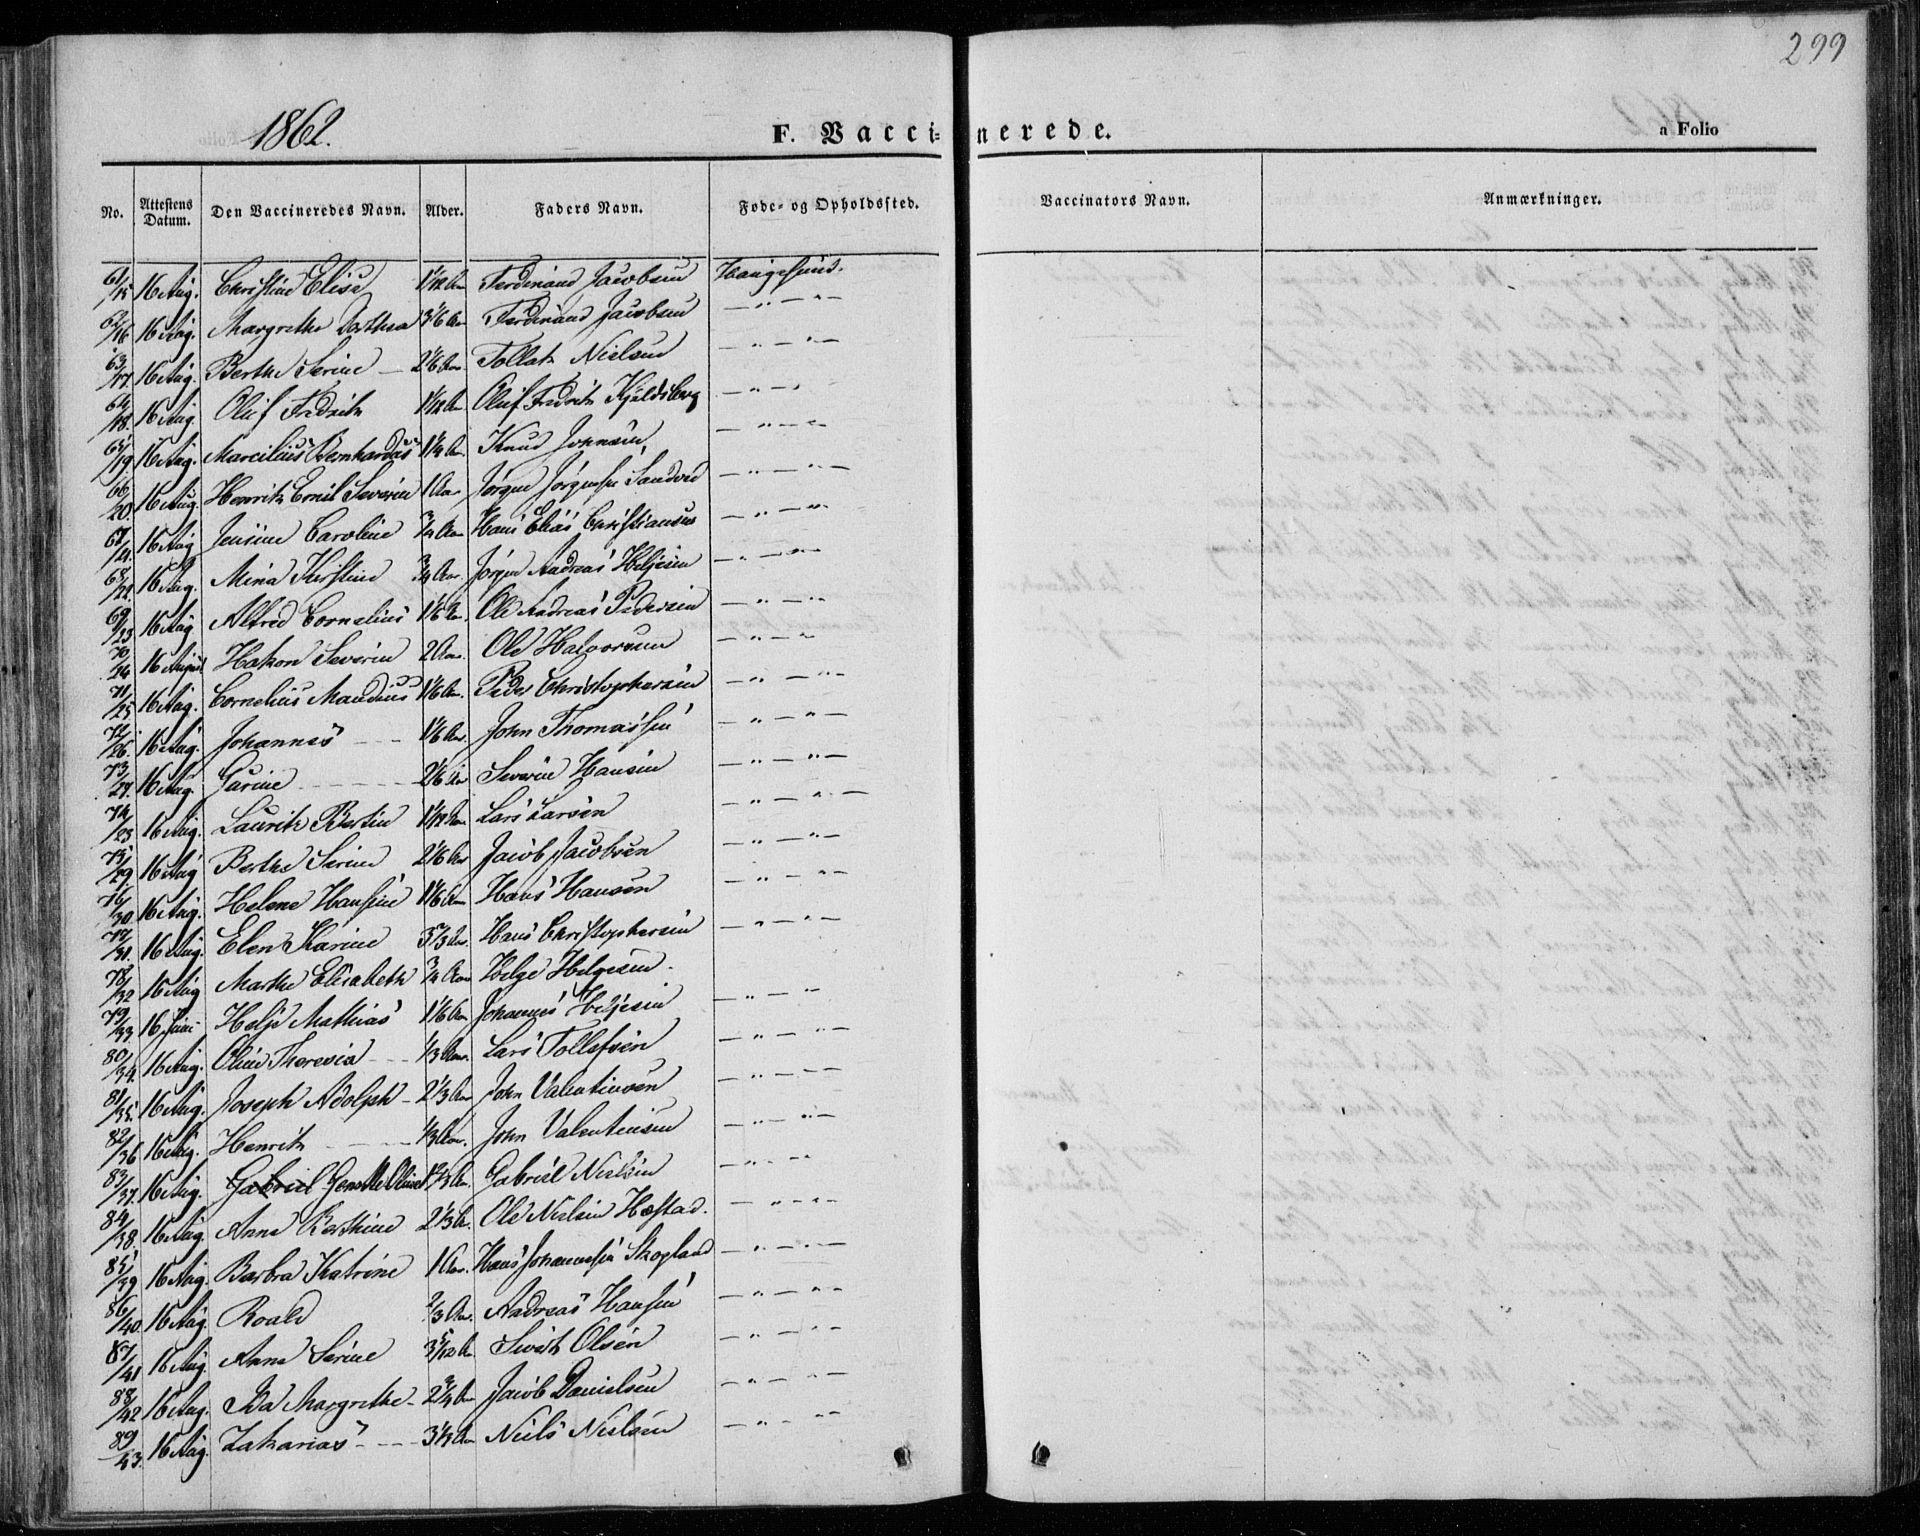 299
1862.
F. Vaccinerede.
a Folio
No. Attestens Datum. Den Vaccineredes Navn. Alder. Faders Navn. Føde- og Opholdssted. Vaccinators Navn. Anmærkninger.
61/15 16 Aug. Christine Elise 1 1/12 Aar Ferdinand Jacobsen Haugesund.
62/16 16 Aug. Margrethe Dorthea 3 1/6 Aar Ferdinand Jacobsen — " — " —
63/17 16 Aug. Berthe Serine — 2 1/6 Aar Tollak Nielsen — " — " —
64/18. 16 Aug. Oluf Fredrik 1 1/12 Aar Oluf Fredrik Kjeldsberg — " — " —
65/19 16 Aug. Marcilius Bernhardus 1 1/4 Aar Knud Johnsen — " — " —
66/20. 16 Aug. Henrik Emil Severin 1 Aar Jørgen Jørgensen Sandved — " — " —
67/21. 16 Aug Jensine Caroline 3/4 Aar Hans Elias Christiansen — " — " —
68/22. 16 Aug. Mina Kirstine 3/4 Aar. Jørgen Andreas Heljesen — " — " —
69/23 16 Aug Alfred Cornelius 1 1/6 Aar Ole Andreas Pedersen — " — " —
70/24 16 August Hakon Severin 2 Aar. Ole Halvorsen — " — " —
71/25 16 Aug. Cornelius Maudius 1 1/6 Aar. Peder Christophersen — " — " —
72/26. 16 Aug. Johannes — 1 1/6 Aar. John Thomassen — " — " —
73/27. 16 Aug. Garine — 2 1/6 Aar Severin Hansen — " — " —
74/28 16 Aug. Laurits Bertin 1 1/12 Aar Lars Larsen — " — " —
75/29 16 Aug Berthe Serine 2 1/6 Aar Jacob Jacobsen — " — " —
76/30 16 Aug. Helene Hansine 1 1/6 Aar Hans Hansen — " — " —
77/31. 16 Aug. Elen Karine Hans Christophersen — " — " —
78/32 16 Aug Marthe Elisabeth 3/4 Aar Helge Helgesen.
79/33. 16 Juni Helje Mathias 1 1/6 Aar Johannes Heljesen — " — " —
80/34. 16 Aug. Oline Theresia — 1/3 Aar. Lars Tollefsen — " — " —
81/35. 16 Aug. Joseph Adolph — 2 1/3 Aar John Valentinsen — " — " —
82/36 16 Aug. Henrik — 1/3 Aar. John Valentinsen — " — " —
83/37. 16 Aug. Gabriel Oline 1 2/3 Aar. Gabriel Nielsen — " — " —
84/38. 16 Aug. Anne Berthine 2 1/3 Aar. Ole Nielsen Hæstad. — " — " —
85/39 16 Aug. Barbra Katrine 1 Aar. Hans Johannessen Skogland — " — " —
86/40. 16 Aug. Roald 2/3 Aar. Andreas Hansen — " — " —
87/41 16 Aug. Anne Serine 3 5/12 Aar Sivert Olsen — " — " —
88/42 16 Aug. Ida Margrethe — 2 3/4 Aar Jacob Danielsen — " — " —
89/43. 16 Aug. Zakarias — 3 1/3 Aar Niels Nielsen — " — " —